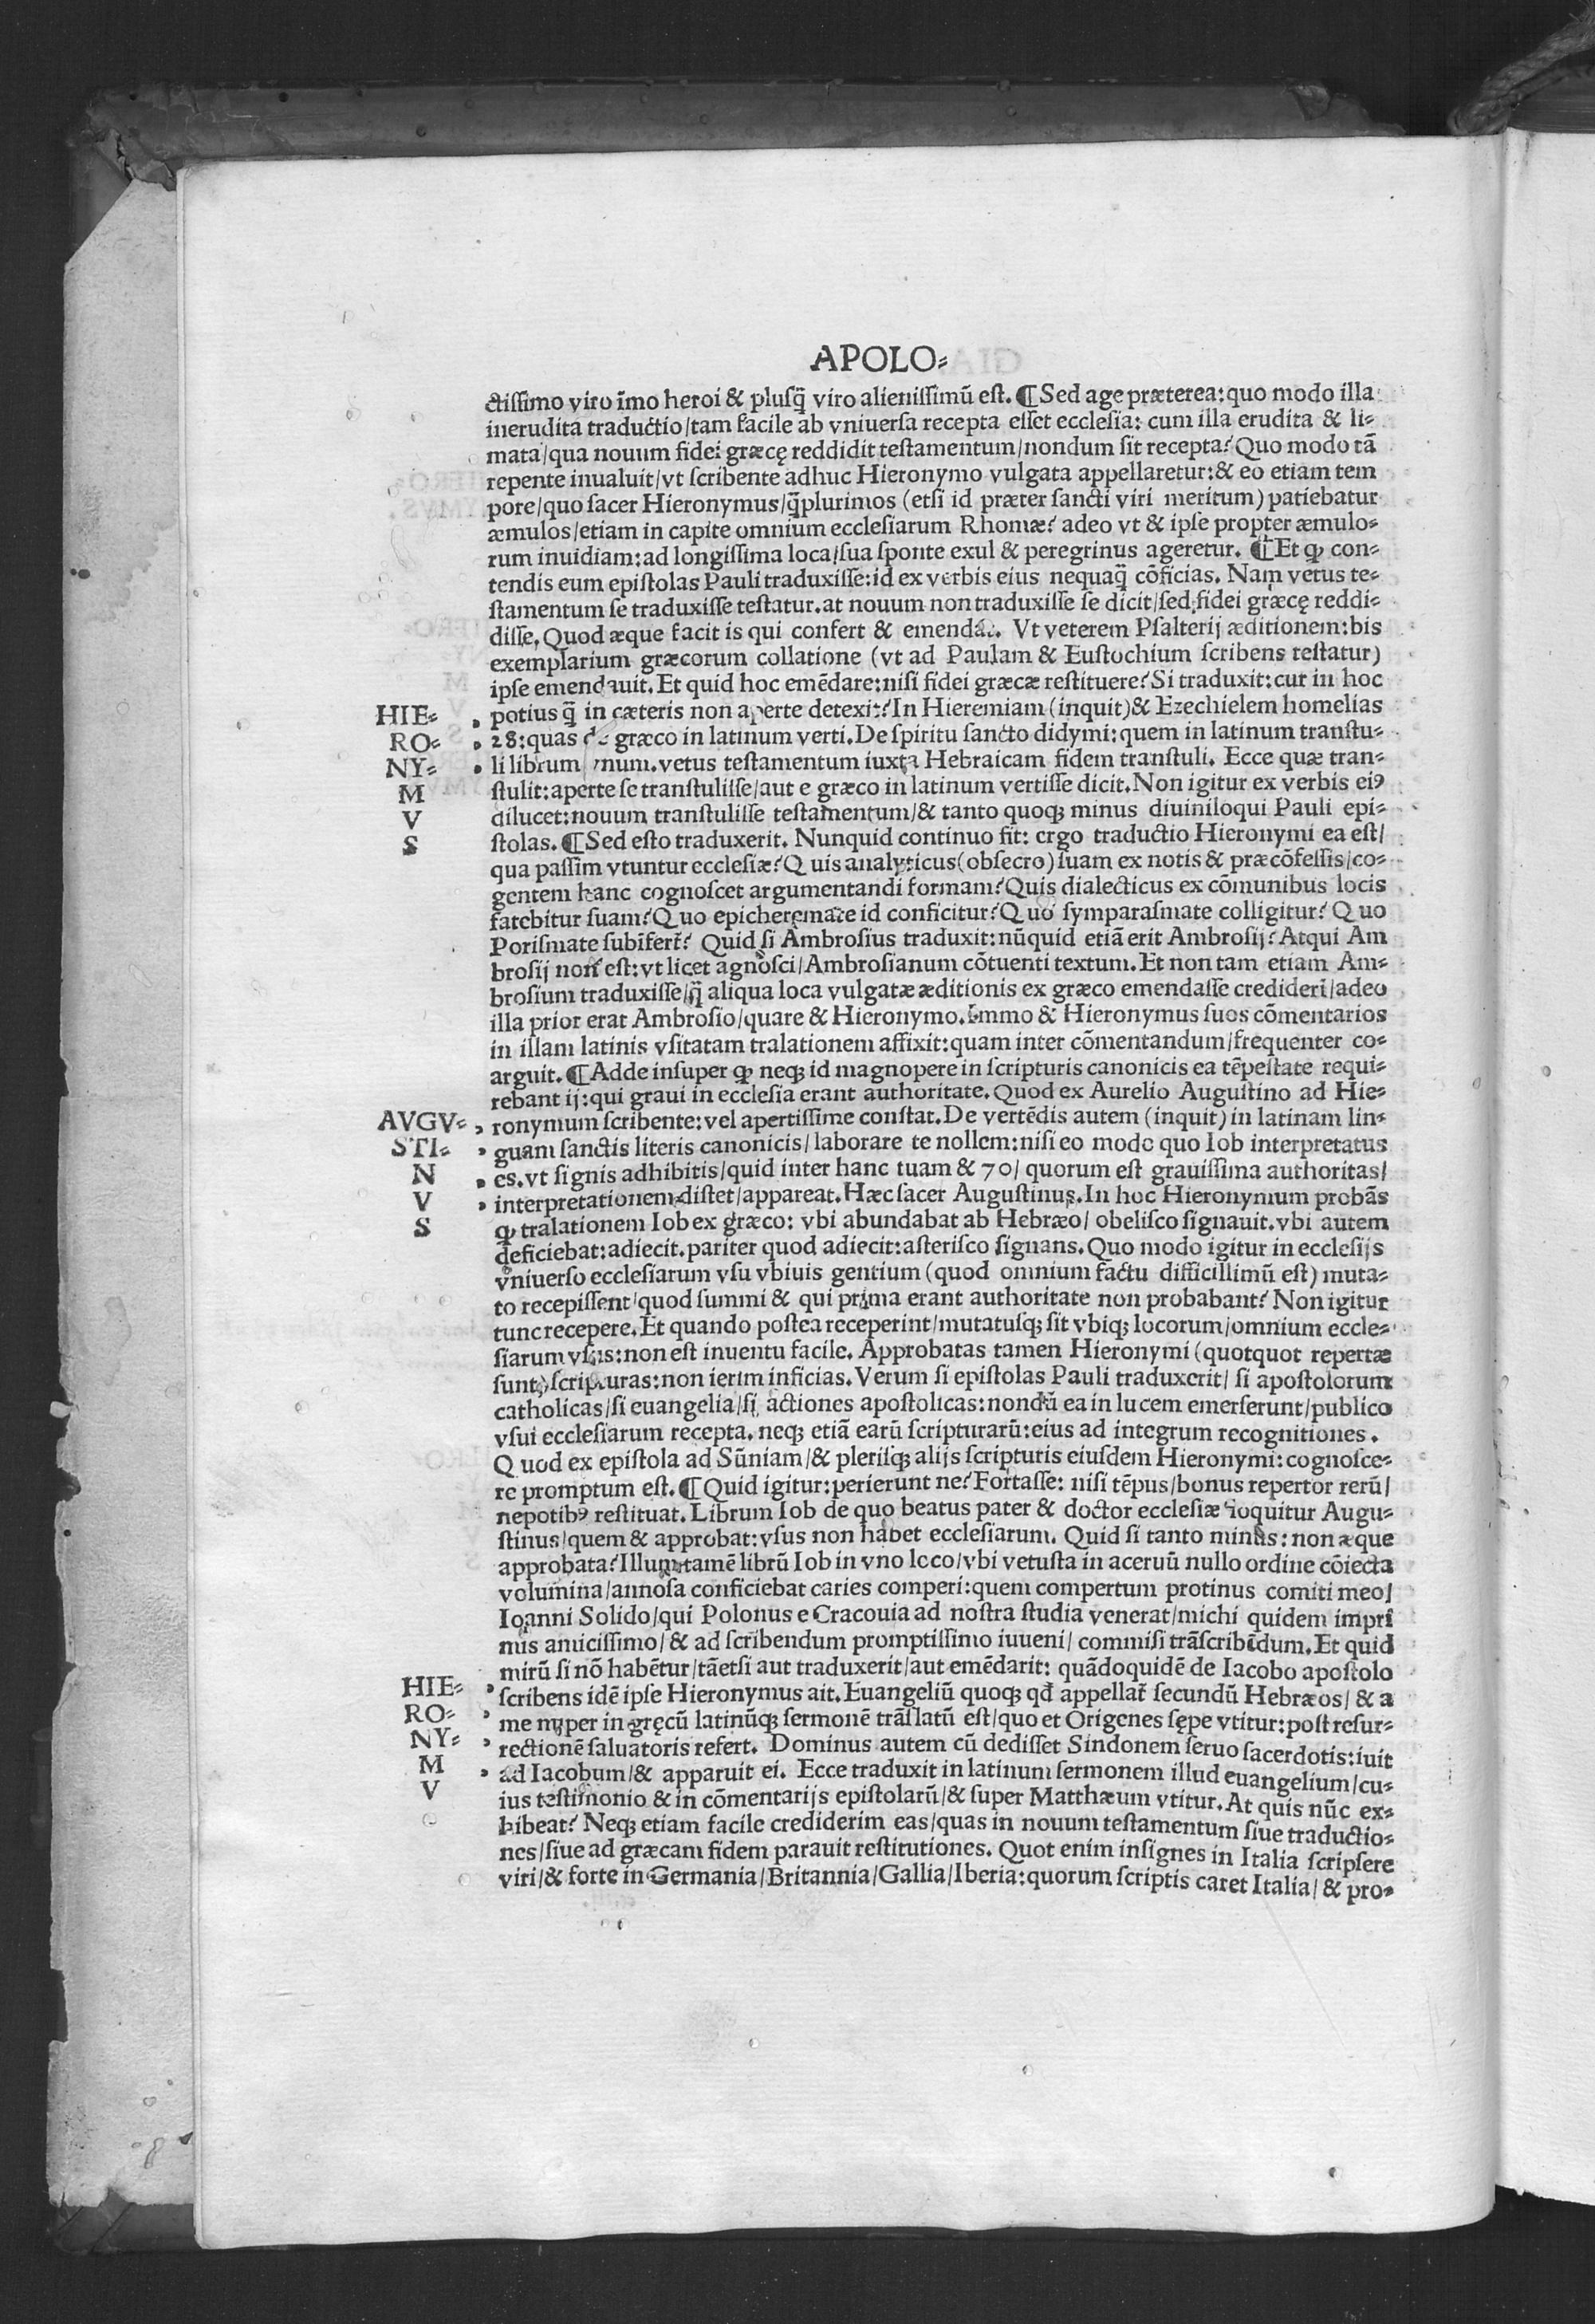 APOLO⸗
ctissimo viro īmo heroi & plusq̄ viro alienissimū est. ¶ Sed age præterea: quo modo illa
inerudita traductio/tam facile ab vniuersa recepta esset ecclesia: cum illa erudita & li⸗
mata/qua nouum fidei græcę reddidit testamentum/nondum sit recepta? Quo modo tā
repente inualuit/vt scribente adhuc Hieronymo vulgata appellaretur: & eo etiam tem
pore/quo sacer Hieronymus/q̄plurimos (etsi id præter sancti viri meritum) patiebatur
æmulos/etiam in capite omnium ecclesiarum Rhomæ? adeo vt & ipse propter æmulo⸗
rum inuidiam: ad longissima loca/sua sponte exul & peregrinus ageretur. ¶ Et ꝙ con⸗
tendis eum epistolas Pauli traduxisse: id ex verbis eius nequaq̄ cōficias. Nam vetus te⸗
stamentum se traduxisse testatur. at nouum non traduxisse se dicit/sed fidei græcę reddi⸗
disse. Quod æque facit is qui confert & emendat. Vt veterem Psalterij æditionem: bis
exemplarium græcorum collatione (vt ad Paulam & Eustochium scribens testatur)
ipse emendauit. Et quid hoc emēdare: nisi fidei græcæ restituere? Si traduxit: cur in hoc
HIE⸗ potius q̄ in cæteris non aperte detexit? In Hieremiam (inquit) & Ezechielem homelias
RO⸗ 28: quas de græco in latinum verti. De spiritu sancto didymi: quem in latinum transtu⸗
NY⸗ li librum vnum. vetus testamentum iuxta Hebraicam fidem transtuli. Ecce quæ tran⸗
M stulit: aperte se transtulisse/aut e græco in latinum vertisse dicit. Non igitur ex verbis eiꝰ
V dilucet: nouum transtulisse testamentum/& tanto quoqꝫ minus diuiniloqui Pauli epi⸗
S stolas. ¶ Sed esto traduxerit. Nunquid continuo fit: ergo traductio Hieronymi ea est/
qua passim vtuntur ecclesiæ? Quis analyticus (obsecro) suam ex notis & præcōfessis/co⸗
gentem hanc cognoscet argumentandi formam? Quis dialecticus ex cōmunibus locis
fatebitur suam? Quo epicheremate id conficitur? Quo symparasmate colligitur? Quo
Porismate subīfert̄? Quid si Ambrosius traduxit: nūquid etiā erit Ambrosij? Atqui Am
brosij non est: vt licet agnosci/Ambrosianum cōtuenti textum. Et non tam etiam Am⸗
brosium traduxisse/q̄ aliqua loca vulgatæ æditionis ex græco emendasse crediderī/adeo
illa prior erat Ambrosio/quare & Hieronymo. Immo & Hieronymus suos cōmentarios
in illam latinis vsitatam tralationem affixit: quam inter cōmentandum/frequenter co⸗
arguit. ¶ Adde insuper ꝙ neqꝫ id magnopere in scripturis canonicis ea tēpestate requi⸗
rebant ij: qui graui in ecclesia erant authoritate. Quod ex Aurelio Augustino ad Hie⸗
AVGV⸗ ronymum scribente: vel apertissime constat. De vertēdis autem (inquit) in latinam lin⸗
STI⸗ guam sanctis literis canonicis/laborare te nollem: nisi eo modo quo Iob interpretatus
N es. vt signis adhibitis/quid inter hanc tuam & 70/quorum est grauissima authoritas/
V interpretationem distet/appareat. Hæc sacer Augustinus. In hoc Hieronymum probās
S ꝙ tralationem Iob ex græco: vbi abundabat ab Hebræo/obelisco signauit. vbi autem
deficiebat: adiecit. pariter quod adiecit: asterisco signans. Quo modo igitur in ecclesijs
vniuerso ecclesiarum vsu vbiuis gentium (quod omnium factu difficillimū est) muta⸗
to recepissent/quod summi & qui prima erant authoritate non probabant? Non igitur
tunc recepere. Et quando postea receperint/mutatusqꝫ sit vbiqꝫ locorum/omnium eccle⸗
siarum vsus: non est inuentu facile. Approbatas tamen Hieronymi (quotquot repertæ
sunt) scripturas: non ierim inficias. Verum si epistolas Pauli traduxerit/si apostolorum
catholicas/si euangelia/si actiones apostolicas: nondū ea in lucem emerserunt/publico
vsui ecclesiarum recepta. neqꝫ etiā earū scripturarū: eius ad integrum recognitiones.
Quod ex epistola ad Sūniam/& plerisqꝫ alijs scripturis eiusdem Hieronymi: cognosce⸗
re promptum est. ¶ Quid igitur: perierunt ne? Fortasse: nisi tēpus/bonus repertor rerū/
nepotibꝰ restituat. Librum Iob de quo beatus pater & doctor ecclesiæ loquitur Augu⸗
stinus/quem & approbat: vsus non habet ecclesiarum. Quid si tanto minus: non æque
approbata? Illum tamē librū Iob in vno loco/vbi vetusta in aceruū nullo ordine cōiecta
volumina/annosa conficiebat caries comperi: quem compertum protinus comiti meo/
Ioanni Solido/qui Polonus e Cracouia ad nostra studia venerat/michi quidem imprī
mis amicissimo/& ad scribendum promptissimo iuueni/commisi trāscribēdum. Et quid
mirū si nō habētur/tāetsi aut traduxerit/aut emēdarit: quādoquidē de Iacobo apostolo
HIE⸗ scribens idē ipse Hieronymus ait. Euangeliū quoqꝫ qđ appellat̄ secundū Hebræos/& a
RO⸗ me nuper in gręcū latinūqꝫ sermonē trāslatū est/quo et Origenes sępe vtitur: post resur⸗
NY⸗ rectionē saluatoris refert. Dominus autem cū dedisset Sindonem seruo sacerdotis: iuit
M ad Iacobum/& apparuit ei. Ecce traduxit in latinum sermonem illud euangelium/cu⸗
V ius testimonio & in cōmentarijs epistolarū/& super Matthæum vtitur. At quis nūc ex⸗
hibeat? Neqꝫ etiam facile crediderim eas/quas in nouum testamentum siue traductio⸗
nes/siue ad græcam fidem parauit restitutiones. Quot enim insignes in Italia scripsere
viri/& forte in Germania/Britannia/Gallia/Iberia: quorum scriptis caret Italia/& pro⸗